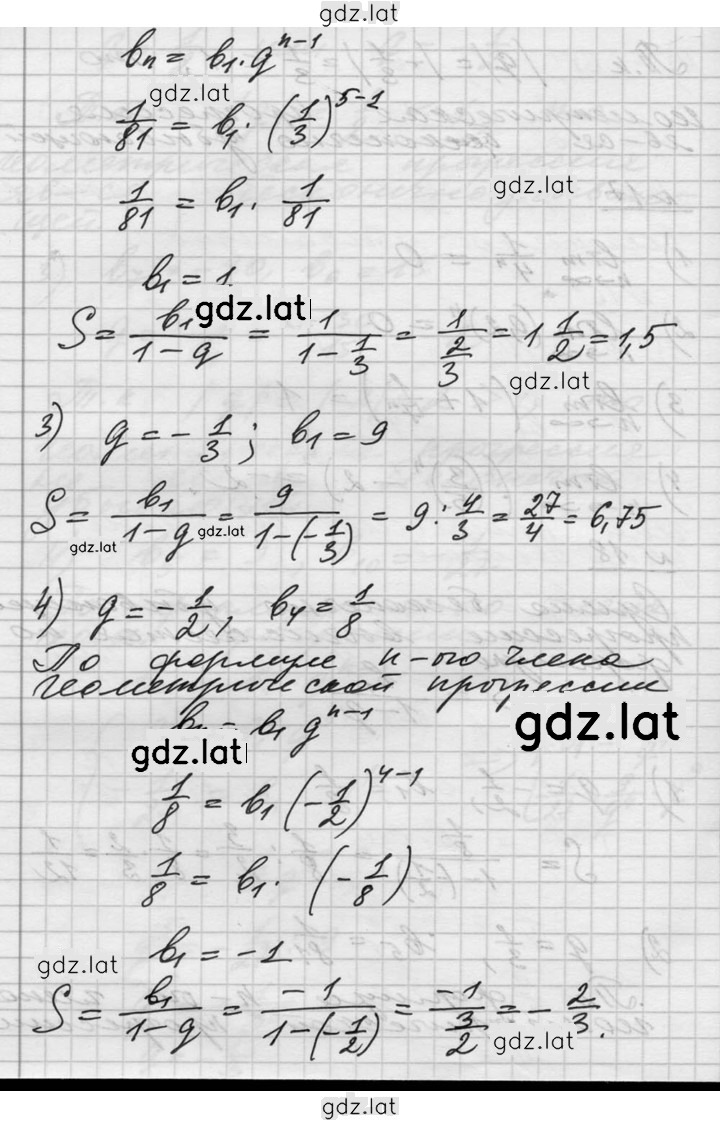 gdz.lat
bₙ = b₁·q^(n-1)
gdz.lat
1/81 = b₁·(1/3)^(5-1)
gdz.lat
1/81 = b₁· 1/81
b₁ = 1.
gdz.lat
S = b₁/(1-q) = 1/(1-1/3) = 1/(2/3) = 1 1/2 = 1,5
gdz.lat
3) q = -1/3; b₁ = 9
S = b₁/(1-q) = 9/(1-(-1/3)) = 9 : 4/3 = 27/4 = 6,75
gdz.lat gdz.lat
4) q = -1/2, b₄ = 1/8
По формуле n-ого члена
геометрической прогрессии
bₙ = b₁ q^(n-1)
gdz.lat
gdz.lat
1/8 = b₁(-1/2)^(4-1)
1/8 = b₁· (-1/8)
b₁ = -1
gdz.lat
S = b₁/(1-q) = -1/(1-(-1/2)) = -1/(3/2) = -2/3.
gdz.lat
gdz.lat